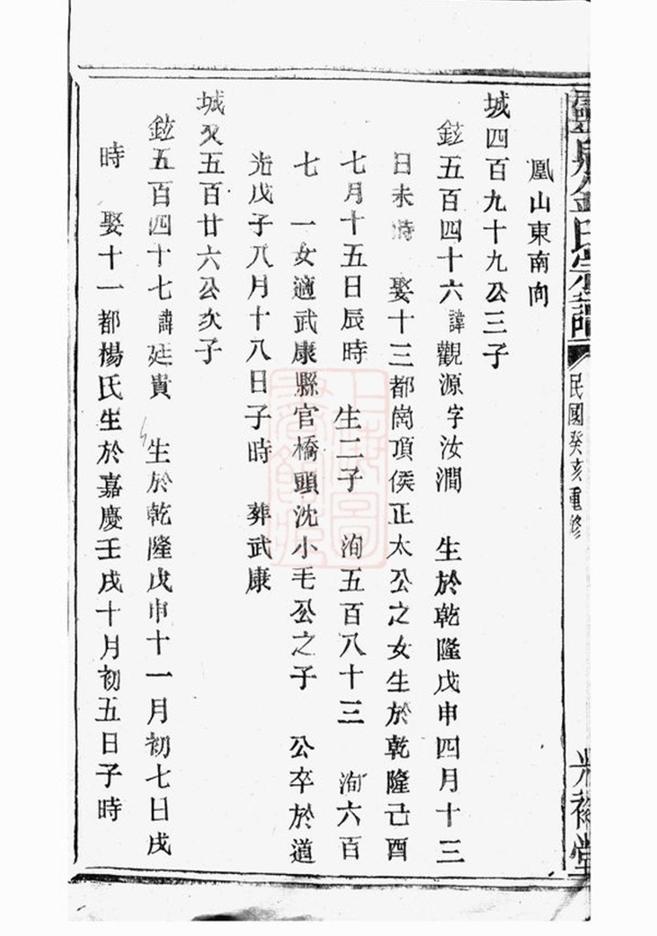 鳳山東南向
城四百九十九公三子
鉉五百四十六諱觀源字汝澗　生於乾隆戊申四月十三
日未時　娶十三都崗頂侯正太公之女生於乾隆己酉
七月十五日辰時　生二子　洵五百八十三　洵六百
七　一女適武康縣官橋頭沈小毛公之子　公卒於道
光戊子八月十八日子時　葬武康
城又五百廿六公次子
鉉五百四十七諱廷貴　生於乾隆戊申十一月初七日戌
時　娶十一都楊氏生於嘉慶壬戌十月初五日子時
氏宗譜
民國癸亥重修
堂